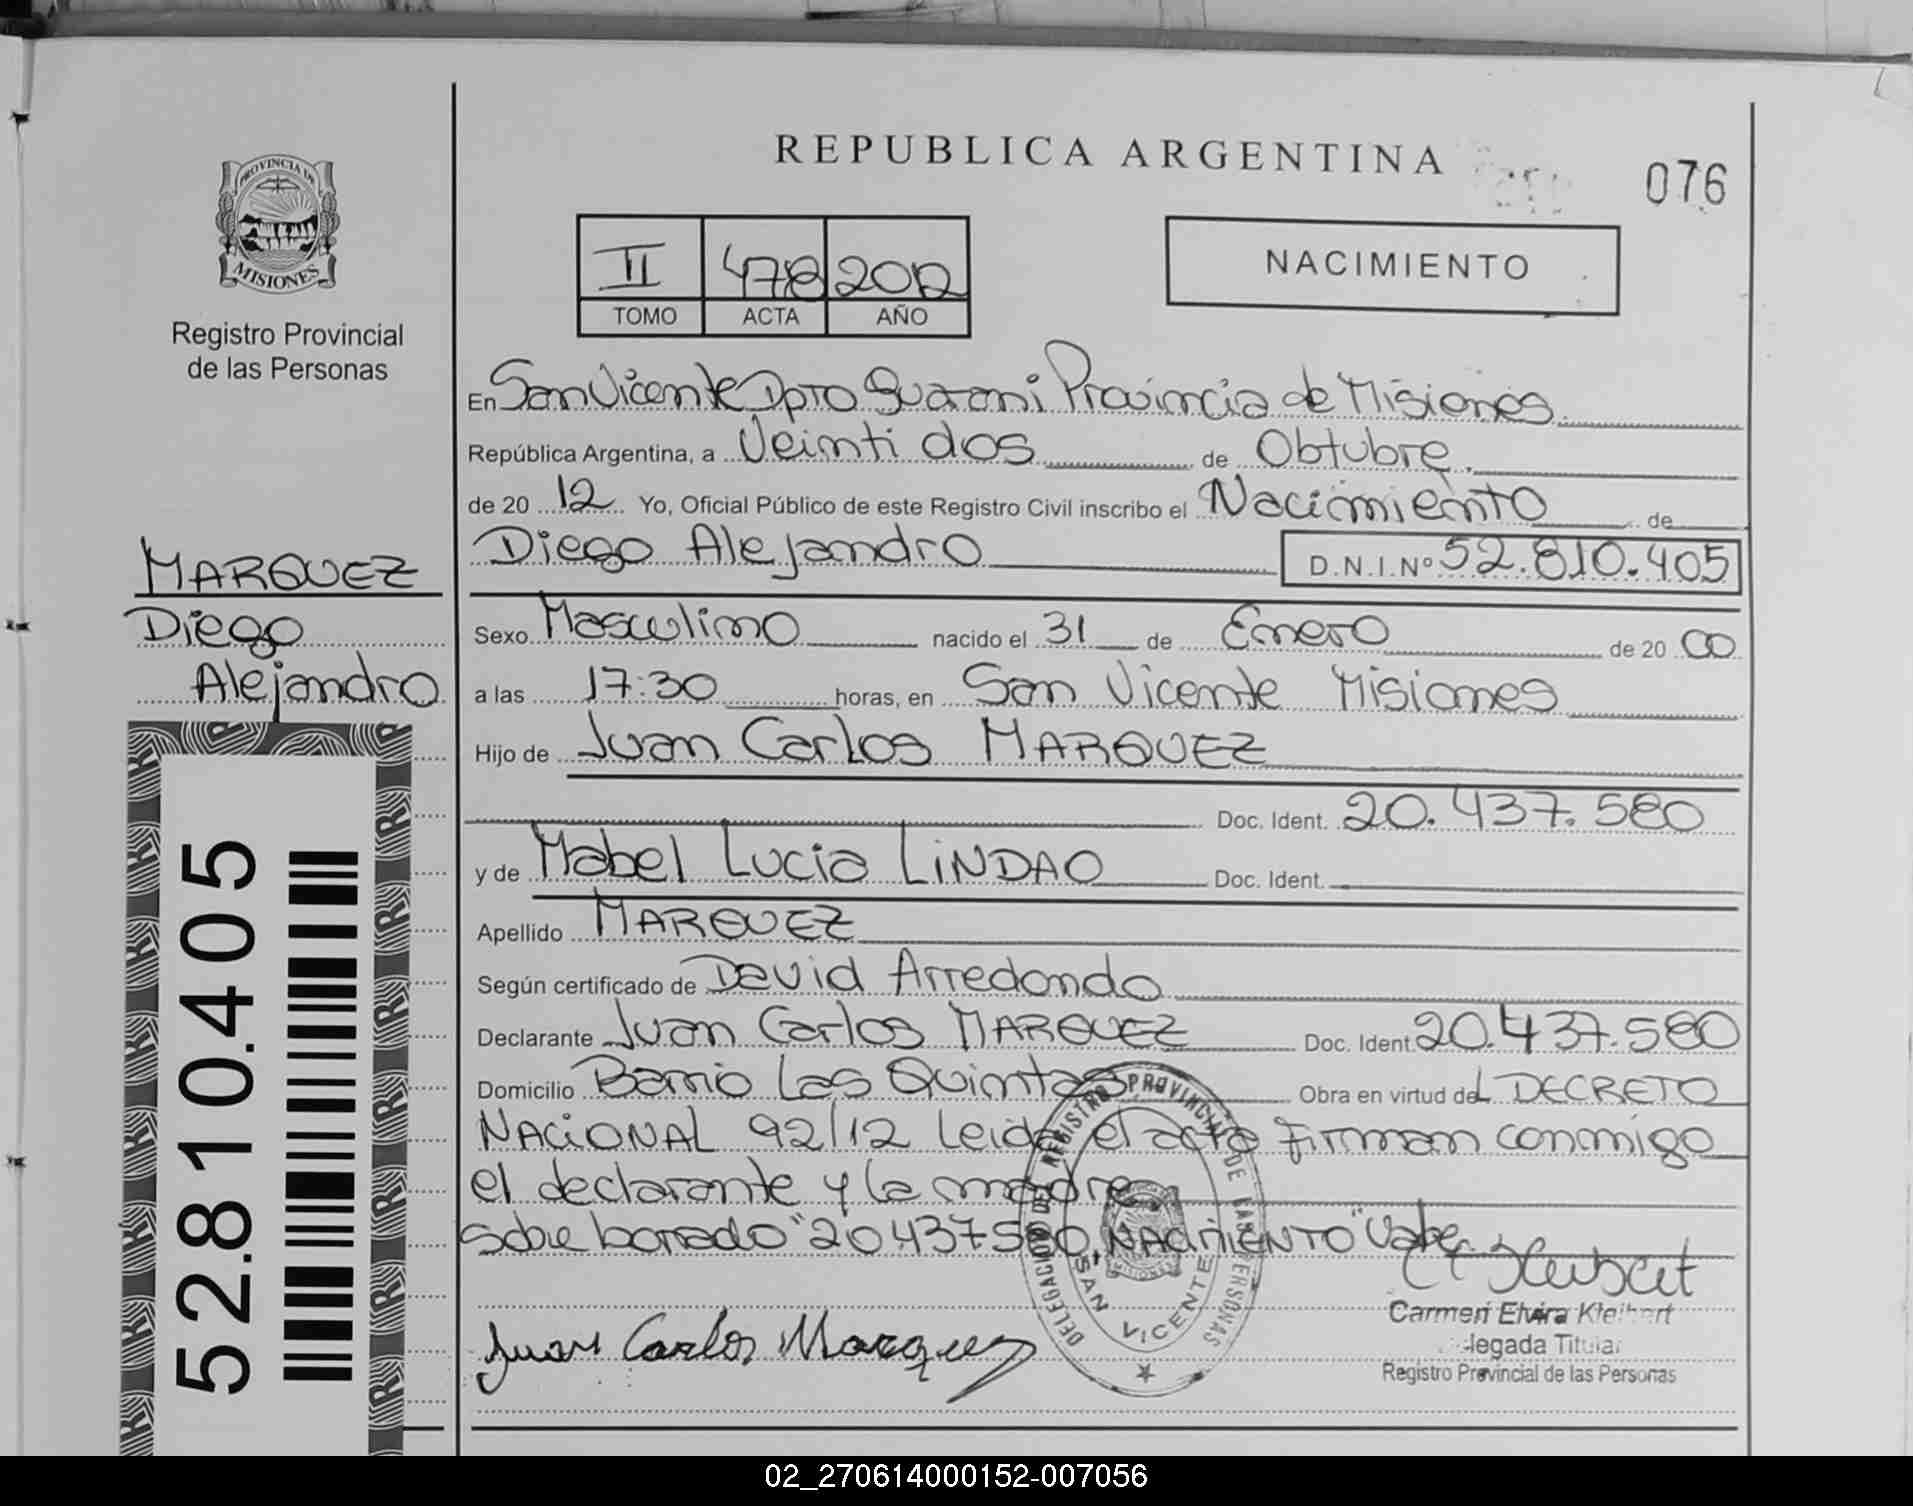 REPUBLICA ARGENTINA
076
PROVINCIA DE
MISIONES
Registro Provincial
de las Personas
II 478 2012
TOMO ACTA AÑO
NACIMIENTO
En San Vicente Dpto Guarani Provincia de Misiones
República Argentina, a Veinti dos de Obtubre
de 20 12 Yo, Oficial Público de este Registro Civil inscribo el Nacimiento de
Diego Alejandro D.N.I.Nº 52.810.405
MARQUEZ
Diego
Alejandro
Sexo Masculino nacido el 31 de Enero de 20 00
a las 17:30 horas, en San Vicente Misiones
Hijo de Juan Carlos MARQUEZ
Doc. Ident. 20.437.580
y de Mabel Lucia LiNDAO Doc. Ident.
Apellido MARQUEZ
Según certificado de David Arredondo
Declarante Juan Carlos MARQUEZ Doc. Ident. 20.437.580
Domicilio Barrio Las Quintas Obra en virtud del DECRETO
NACiONAL 92/12 Leida el acta firman conmigo
el declarante y la madre
Sobre borrado "20437580, NACiMiENTO" Vale.
DELEGACION DEL REGISTRO PROVINCIAL DE LAS PERSONAS
SAN VICENTE
MISIONES
Juan Carlos Marquez
Carmen Elvira Kleibert
legada Titular
Registro Provincial de las Personas
52.810.405
02_270614000152-007056